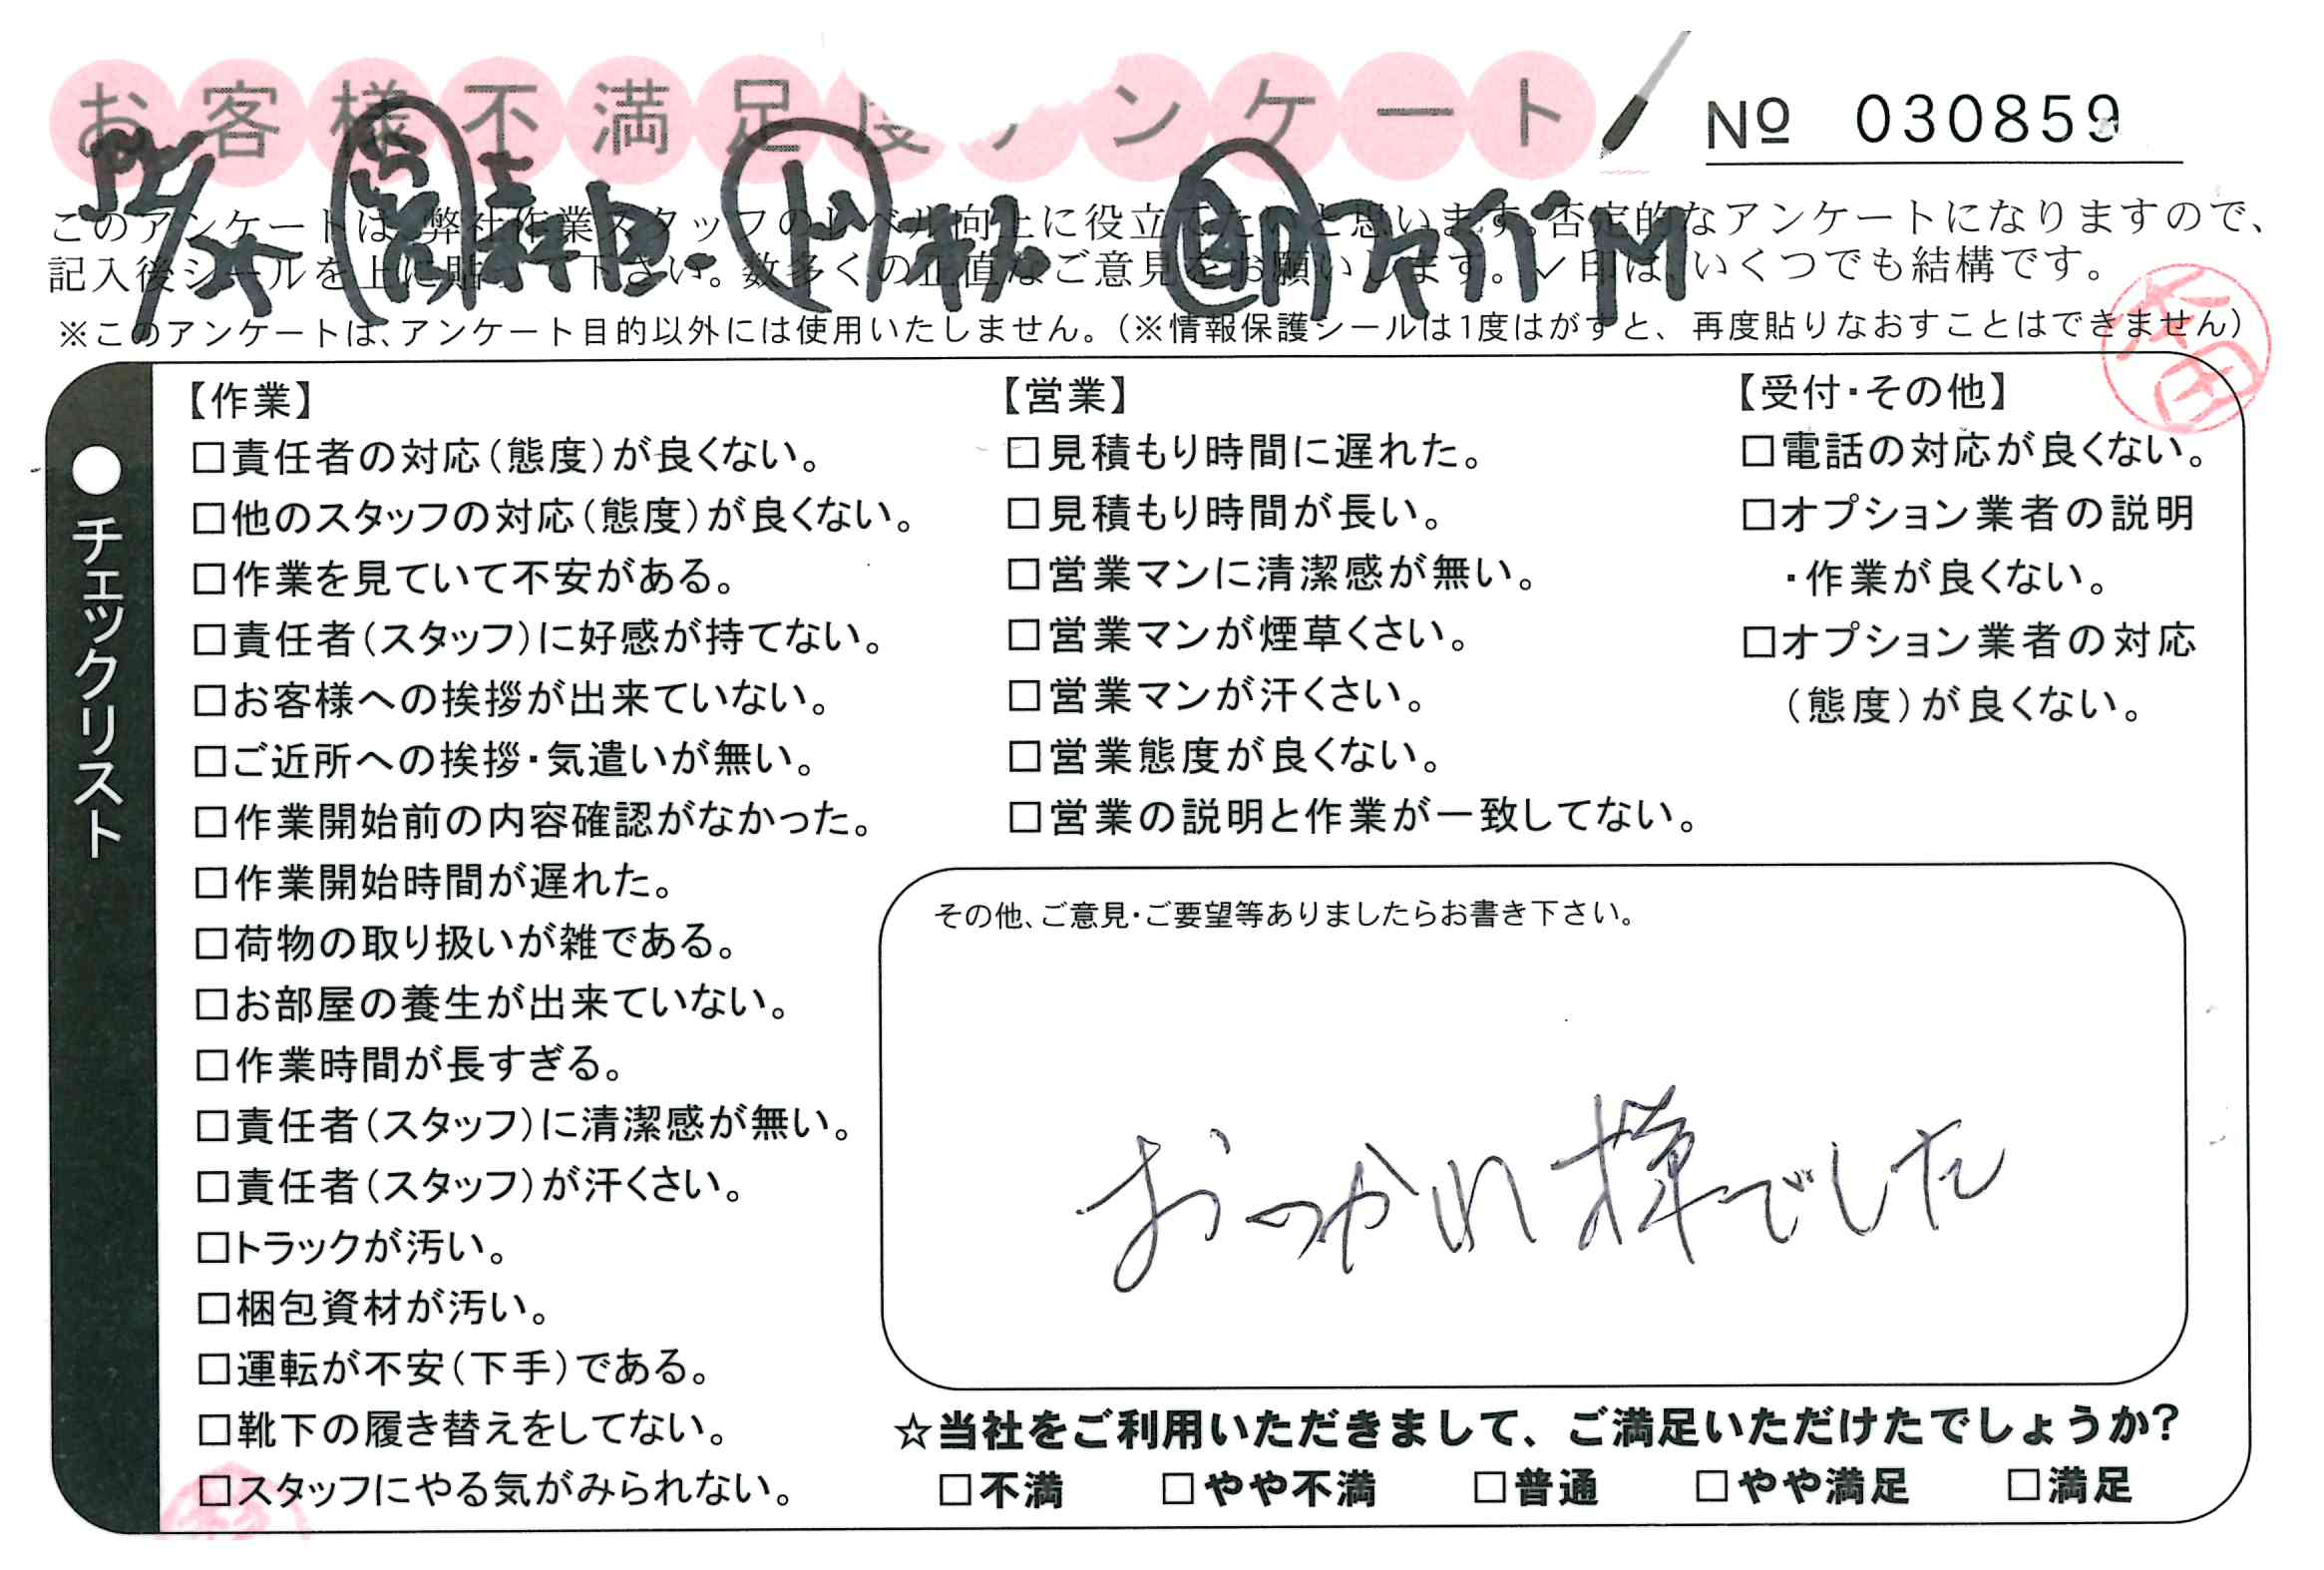 お客様不満足度アンケート
Nº 030859
このアンケートは、弊社作業スタッフのレベル向上に役立てたいと思います。否定的なアンケートになりますので、
記入後シールを上に貼って下さい。数多くの正直なご意見をお願いします。✓印は、いくつでも結構です。
※このアンケートは、アンケート目的以外には使用いたしません。（※情報保護シールは1度はがすと、再度貼りなおすことはできません）
●チェックリスト
【作業】
□責任者の対応（態度）が良くない。
□他のスタッフの対応（態度）が良くない。
□作業を見ていて不安がある。
□責任者（スタッフ）に好感が持てない。
□お客様への挨拶が出来ていない。
□ご近所への挨拶・気遣いが無い。
□作業開始前の内容確認がなかった。
□作業開始時間が遅れた。
□荷物の取り扱いが雑である。
□お部屋の養生が出来ていない。
□作業時間が長すぎる。
□責任者（スタッフ）に清潔感が無い。
□責任者（スタッフ）が汗くさい。
□トラックが汚い。
□梱包資材が汚い。
□運転が不安（下手）である。
□靴下の履き替えをしてない。
□スタッフにやる気がみられない。
【営業】
□見積もり時間に遅れた。
□見積もり時間が長い。
□営業マンに清潔感が無い。
□営業マンが煙草くさい。
□営業マンが汗くさい。
□営業態度が良くない。
□営業の説明と作業が一致してない。
【受付・その他】
□電話の対応が良くない。
□オプション業者の説明
・作業が良くない。
□オプション業者の対応
（態度）が良くない。
その他、ご意見・ご要望等ありましたらお書き下さい。
おつかれ様でした
☆当社をご利用いただきまして、ご満足いただけたでしょうか?
□不満 □やや不満 □普通 □やや満足 □満足